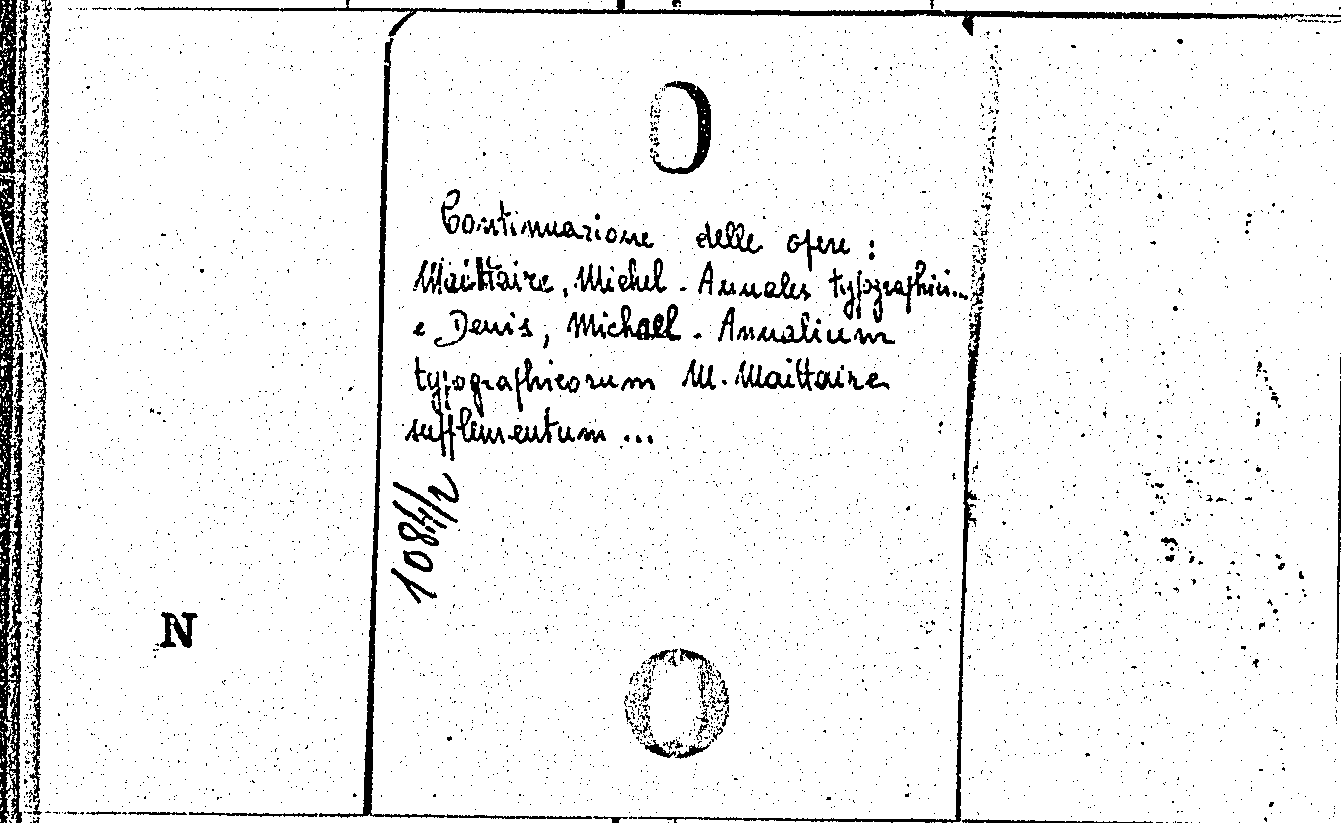 Continuazione delle opere :
Maittaire, Michel - Annales typographici...
e Denis, Michael - Annalium
typographicorum M. Maittaire
supplementum ...
1084/2
N